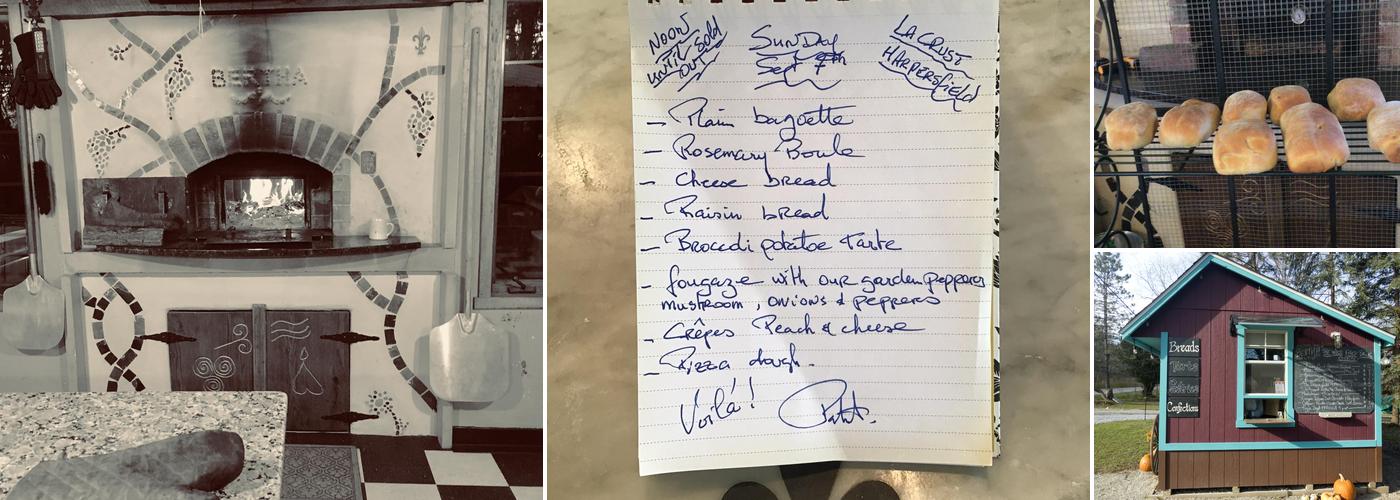 BERTBA
NOON
UNTIL Sold
OUT
SUNDAY
Sept 7th
LA CRUST
HARPERSfiEld
– Plain baguette
– Rosemary Boule
– Cheese bread
– Raisin bread
– Brocoli potatoe tarte
– fougaze with our garden peppers
mushroom, onions & peppers
– Crêpes Peach & cheese
– Pizza dough.
Voilà!
Breads
Tarts
Confections